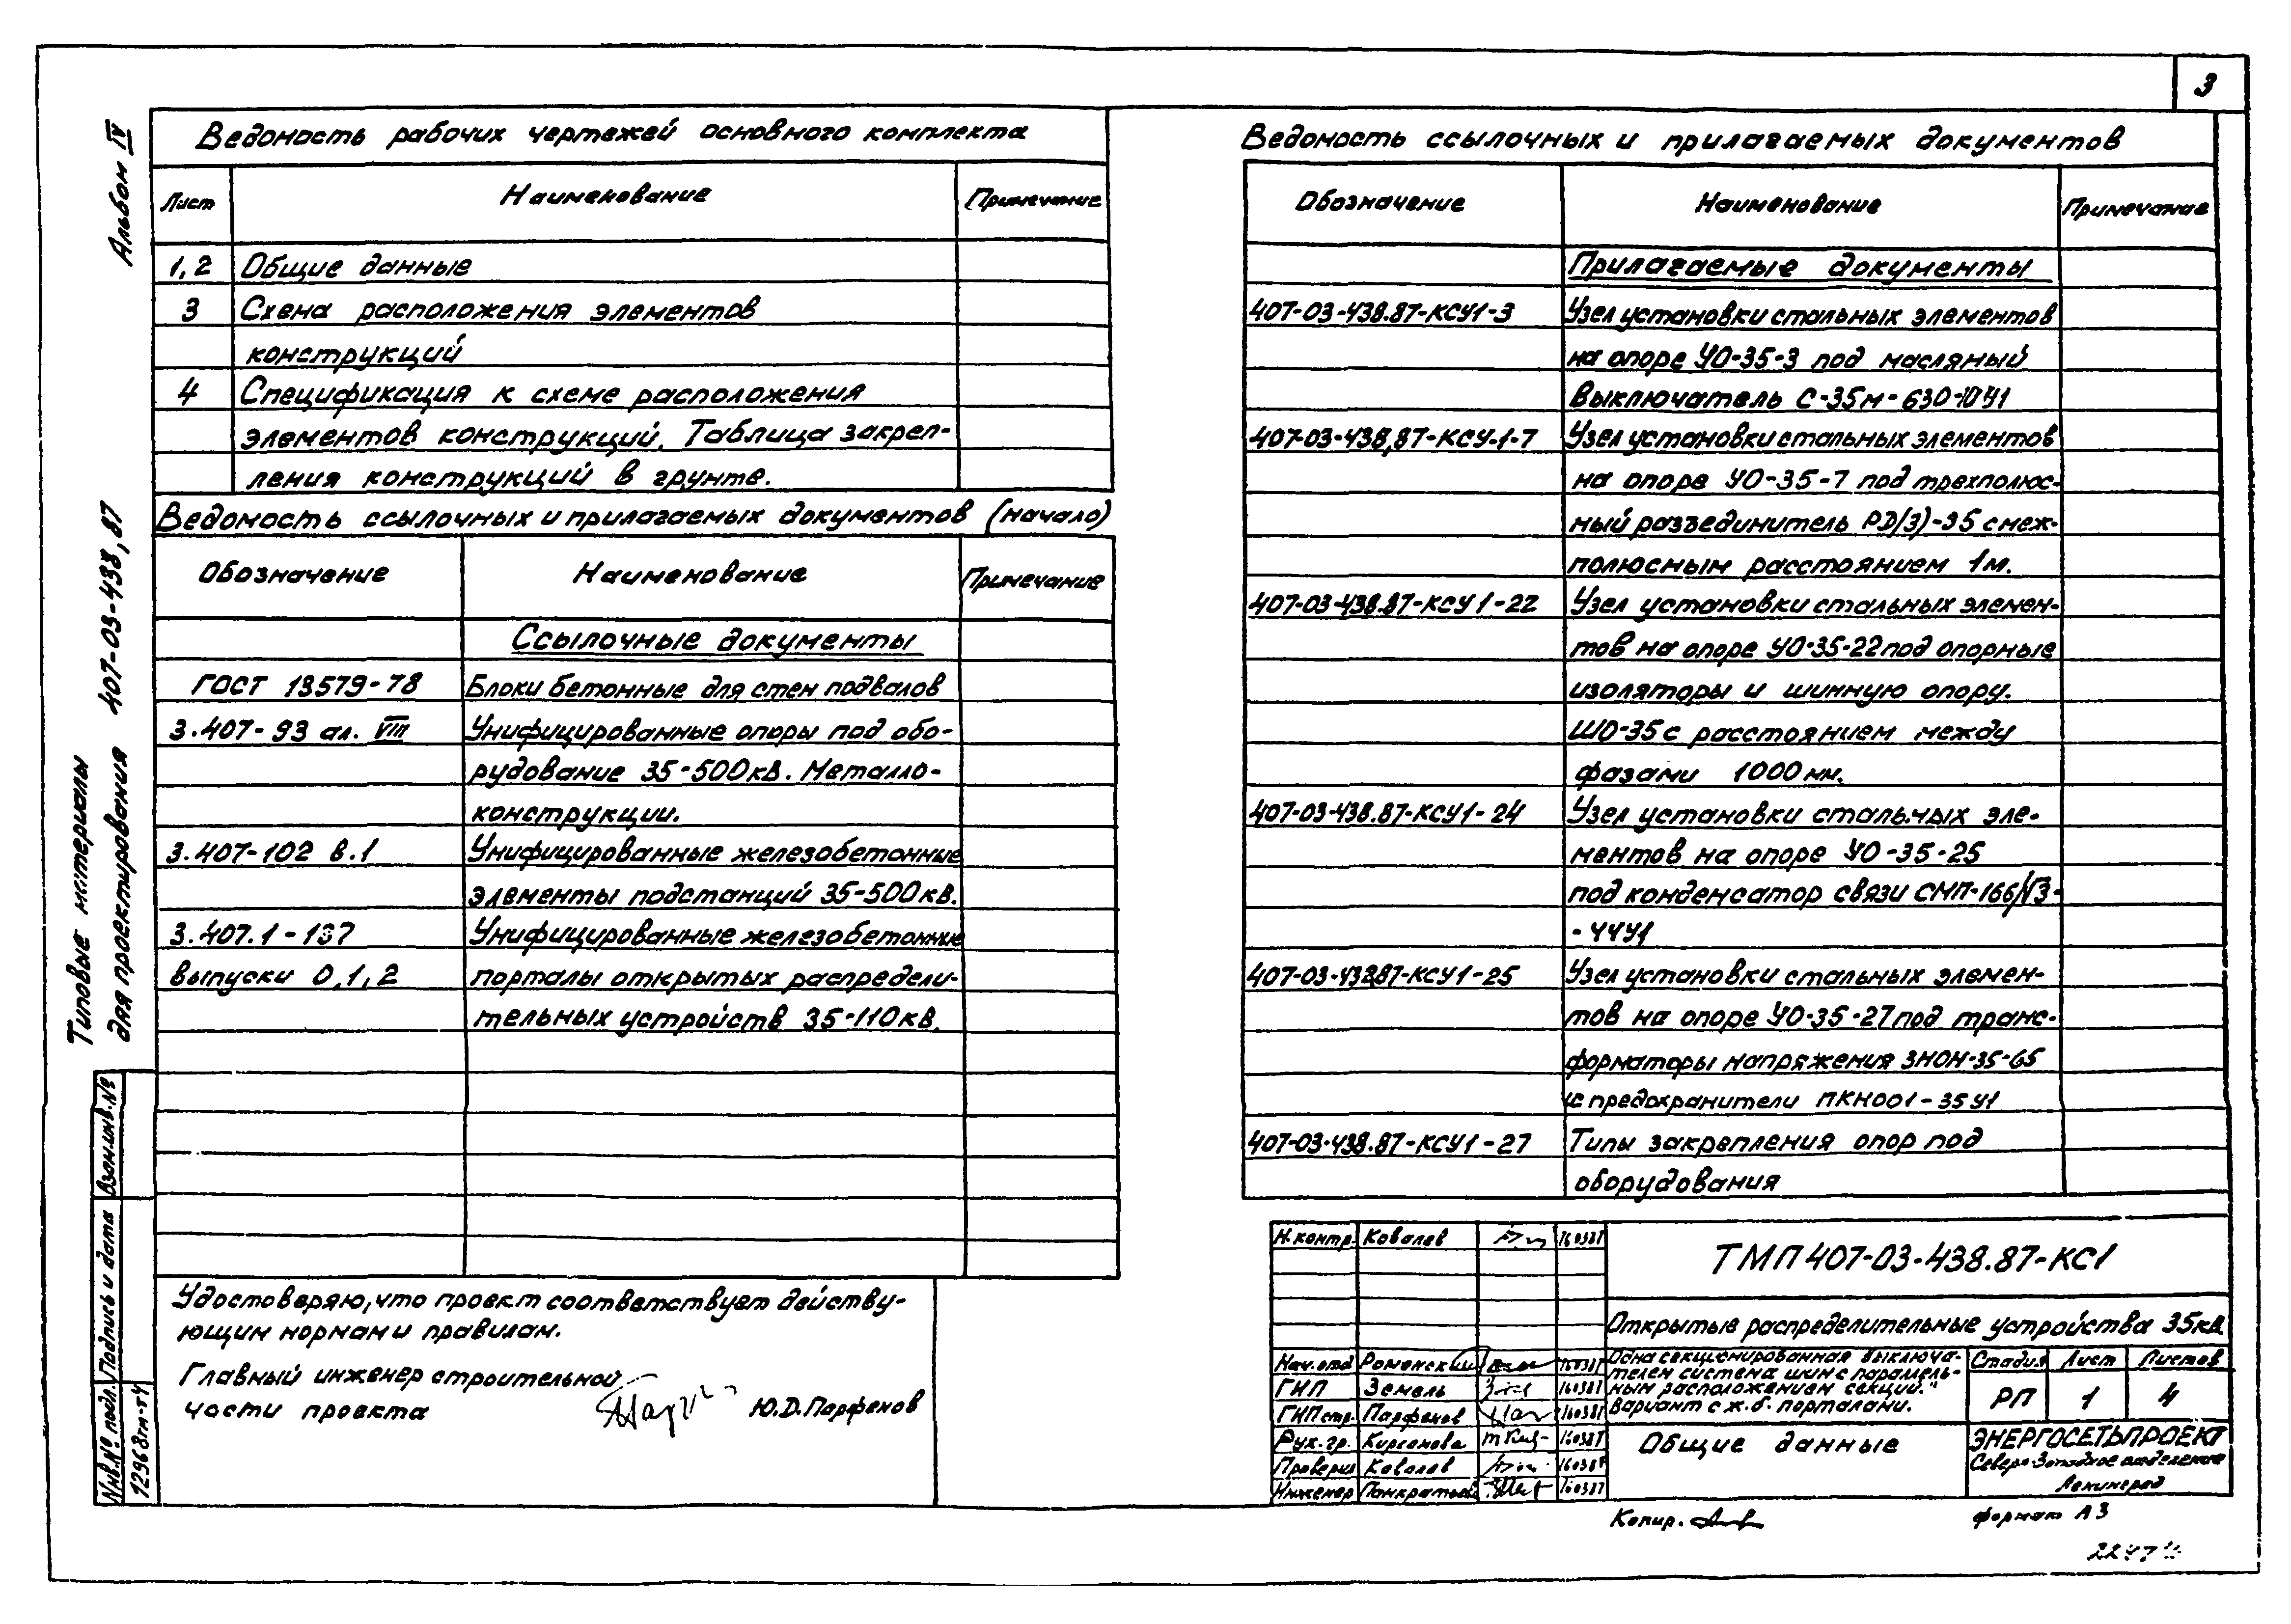 3
Альбом IV
Типовые материалы
для проектирования 407-03-438,87
Ведомость рабочих чертежей основного комплекта
Лист Наименование Примечание
1,2 Общие данные
3 Схема расположения элементов
конструкций
4 Спецификация к схеме расположения
элементов конструкций. Таблица закреп-
ления конструкций в грунте.
Ведомость ссылочных и прилагаемых документов (начало)
Обозначение Наименование Примечание
Ссылочные документы
ГОСТ 13579-78 Блоки бетонные для стен подвалов
3.407-93 ал. VIII Унифицированные опоры под обо-
рудование 35-500кв. Металло-
конструкции.
3.407-102 в.1 Унифицированные железобетонные
элементы подстанций 35-500кв.
3.407.1-137 Унифицированные железобетонные
выпуски 0,1,2 порталы открытых распредели-
тельных устройств 35-110кв.
Удостоверяю, что проект соответствует действу-
ющим нормам и правилам.
Главный инженер строительной
части проекта Ю.Д.Парфенов
Взам.инв.№
Подпись и дата
Инв.№ подл.
12968тм-т4
Ведомость ссылочных и прилагаемых документов
Обозначение Наименование Примечание
Прилагаемые документы
407-03-438.87-КСУ1-3 Узел установки стальных элементов
на опоре УО-35-3 под масляный
Выключатель С-35м-630-10У1
407-03-438,87-КСУ-1-7 Узел установки стальных элементов
на опоре УО-35-7 под трехполюс-
ный разъединитель РД(З)-35 с меж-
полюсным расстоянием 1м.
407-03-438.87-КСУ1-22 Узел установки стальных элемен-
тов на опоре УО-35-22 под опорные
изоляторы и шинную опору.
ШО-35 с расстоянием между
фазами 1000мм.
407-03-438.87-КСУ1-24 Узел установки стальных эле-
ментов на опоре УО-35-25
под конденсатор связи СМП-166/√3-
-44У1
407-03-43887-КСУ1-25 Узел установки стальных элемен-
тов на опоре УО-35-27 под транс-
форматоры напряжения ЗНОН-35-65
и предохранители ПКН001-35У1
407-03-438.87-КСУ1-27 Типы закрепления опор под
оборудования
Н.контр. Ковалев 160387
ТМП 407-03-438.87-КС1
Открытые распределительные устройства 35кв
Нач.отд Роменский 160387
ГИП Земель 160387
ГИПстр. Парфенов 160387
Рук.гр. Курсанова 160387
Проверил Ковалев 160387
Инженер 160387
Одна секционированная выключа-
телем система шин с параллель-
ным расположением секций."
Вариант с ж.б. порталами.
Стадия Лист Листов
РП 1 4
Общие данные
ЭНЕРГОСЕТЬПРОЕКТ
Северо-Западное отделение
Ленинград
Копир.
формат А3